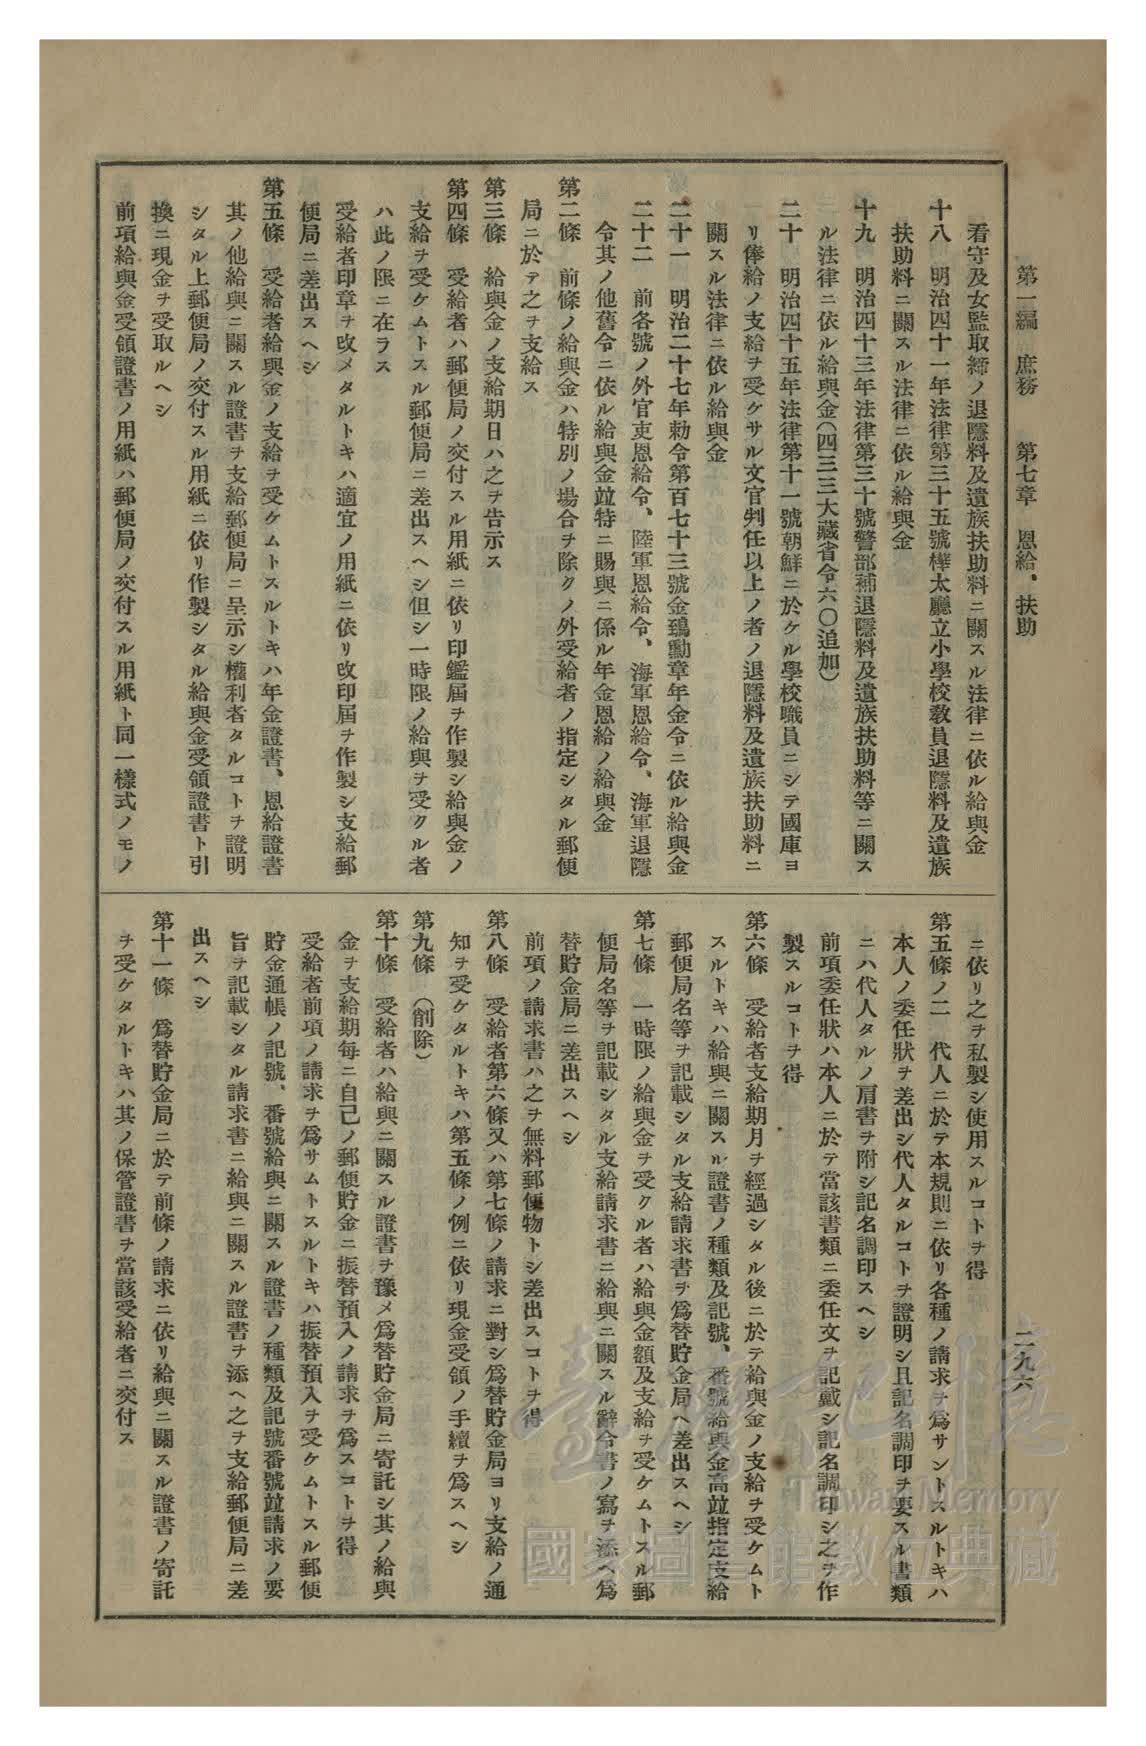 第一編　庶務　　第七章　恩給、扶助
二九六
看守及女監取締ノ退隱料及遺族扶助料ニ關スル法律ニ依ル給與金
十八　明治四十一年法律第三十五號樺太廳立小學校敎員退隱料及遺族
扶助料ニ關スル法律ニ依ル給與金
十九　明治四十三年法律第三十號警部補退隱料及遺族扶助料等ニ關ス
ル法律ニ依ル給與金(四三三大藏省令六〇追加)
二十　明治四十五年法律第十一號朝鮮ニ於ケル學校職員ニシテ國庫ヨ
リ俸給ノ支給ヲ受ケサル文官判任以上ノ者ノ退隱料及遺族扶助料ニ
關スル法律ニ依ル給與金
二十一　明治二十七年勅令第百七十三號金鵄勳章年金令ニ依ル給與金
二十二　前各號ノ外官吏恩給令、陸軍恩給令、海軍恩給令、海軍退隱
令其ノ他舊令ニ依ル給與金竝特ニ賜與ニ係ル年金恩給ノ給與金
第二條　前條ノ給與金ハ特別ノ場合ヲ除クノ外受給者ノ指定シタル郵便
局ニ於テ之ヲ支給ス
第三條　給與金ノ支給期日ハ之ヲ告示ス
第四條　受給者ハ郵便局ノ交付スル用紙ニ依リ印鑑屆ヲ作製シ給與金ノ
支給ヲ受ケムトスル郵便局ニ差出スヘシ但シ一時限ノ給與ヲ受クル者
ハ此ノ限ニ在ラス
受給者印章ヲ改メタルトキハ適宜ノ用紙ニ依リ改印屆ヲ作製シ支給郵
便局ニ差出スヘシ
第五條　受給者給與金ノ支給ヲ受ケムトスルトキハ年金證書、恩給證書
其ノ他給與ニ關スル證書ヲ支給郵便局ニ呈示シ權利者タルコトヲ證明
シタル上郵便局ノ交付スル用紙ニ依リ作製シタル給與金受領證書ト引
換ニ現金ヲ受取ルヘシ
前項給與金受領證書ノ用紙ハ郵便局ノ交付スル用紙ト同一樣式ノモノ
ニ依リ之ヲ私製シ使用スルコトヲ得
第五條ノ二　代人ニ於テ本規則ニ依リ各種ノ請求ヲ爲サントスルトキハ
本人ノ委任狀ヲ差出シ代人タルコトヲ證明シ且記名調印ヲ要スル書類
ニハ代人タルノ肩書ヲ附シ記名調印スヘシ
前項委任狀ハ本人ニ於テ當該書類ニ委任文ヲ記載シ記名調印シ之ヲ作
製スルコトヲ得
第六條　受給者支給期月ヲ經過シタル後ニ於テ給與金ノ支給ヲ受ケムト
スルトキハ給與ニ關スル證書ノ種類及記號、番號給與金高竝指定支給
郵便局名等ヲ記載シタル支給請求書ヲ爲替貯金局ヘ差出スヘシ
第七條　一時限ノ給與金ヲ受クル者ハ給與金額及支給ヲ受ケムトスル郵
便局名等ヲ記載シタル支給請求書ニ給與ニ關スル辭令書ノ寫ヲ添ヘ爲
替貯金局ニ差出スヘシ
前項ノ請求書ハ之ヲ無料郵便物トシ差出スコトヲ得
第八條　受給者第六條又ハ第七條ノ請求ニ對シ爲替貯金局ヨリ支給ノ通
知ヲ受ケタルトキハ第五條ノ例ニ依リ現金受領ノ手續ヲ爲スヘシ
第九條　(削除)
第十條　受給者ハ給與ニ關スル證書ヲ豫メ爲替貯金局ニ寄託シ其ノ給與
金ヲ支給期每ニ自己ノ郵便貯金ニ振替預入ノ請求ヲ爲スコトヲ得
受給者前項ノ請求ヲ爲サムトスルトキハ振替預入ヲ受ケムトスル郵便
貯金通帳ノ記號、番號給與ニ關スル證書ノ種類及記號番號竝請求ノ要
旨ヲ記載シタル請求書ニ給與ニ關スル證書ヲ添ヘ之ヲ支給郵便局ニ差
出スヘシ
第十一條　爲替貯金局ニ於テ前條ノ請求ニ依リ給與ニ關スル證書ノ寄託
ヲ受ケタルトキハ其ノ保管證書ヲ當該受給者ニ交付ス
臺灣記憶
Taiwan Memory
國家圖書館數位典藏